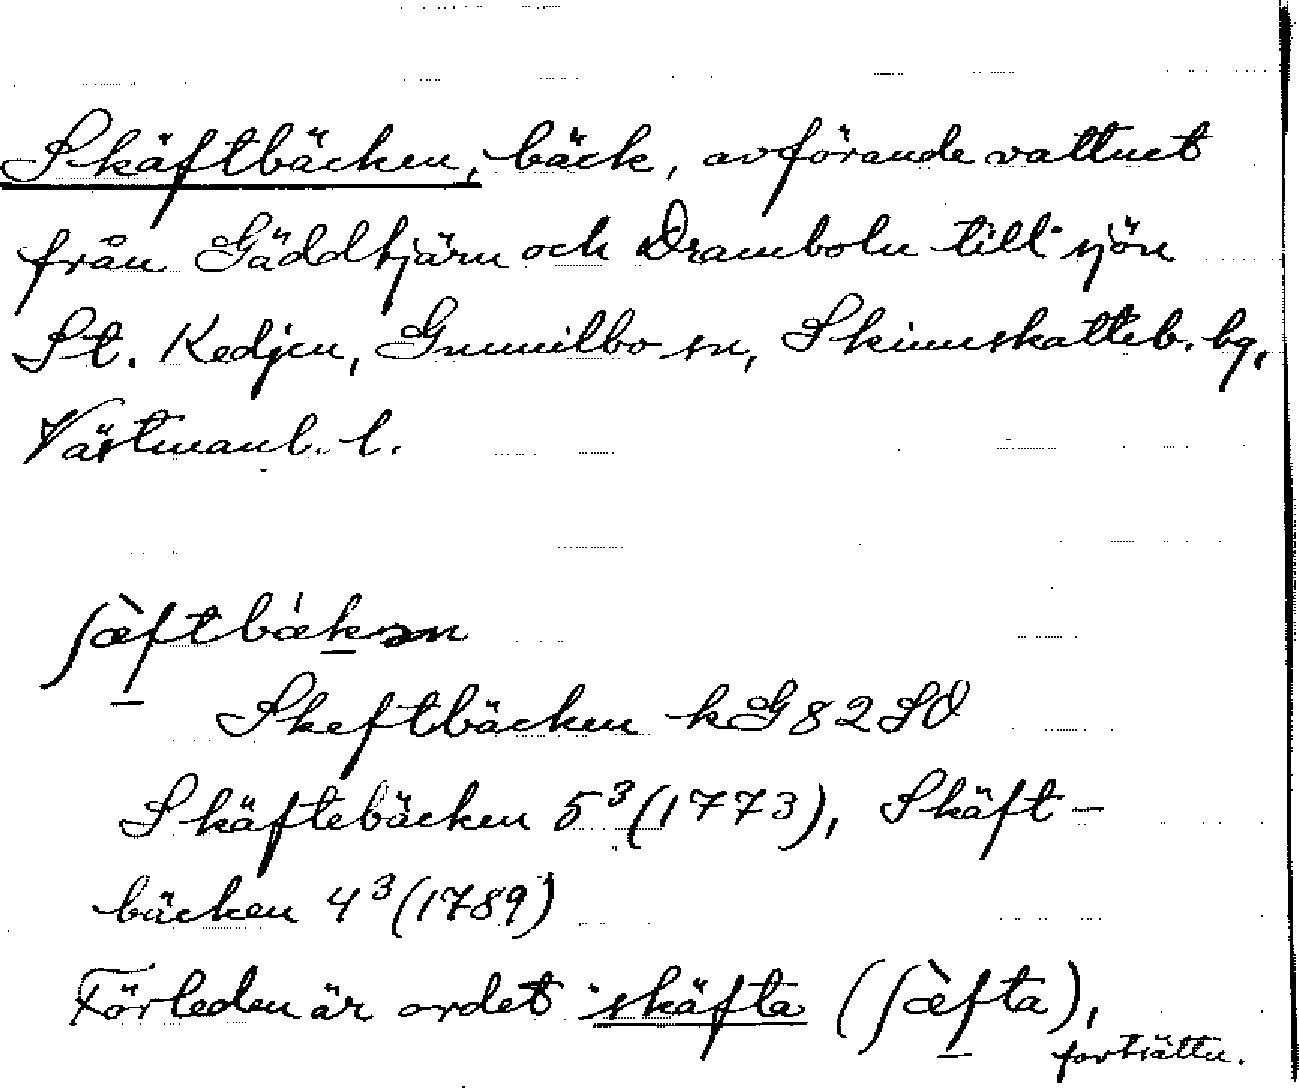 Skäftbäcken, bäck, avförande vattnet
från Gäddtjärn och Dramboln till sjön
St. Kedjen, Gunnilbo sn, Skinnskatteb. bg,
Västmanl. l.
ʃæ̀ftbækən
Skeftbäcken kG82SO
Skäftebäcken 5³(1773), Skäft-
bäcken 4³(1789)
Förleden är ordet skäfta (ʃæ̀fta),
fortsättn.